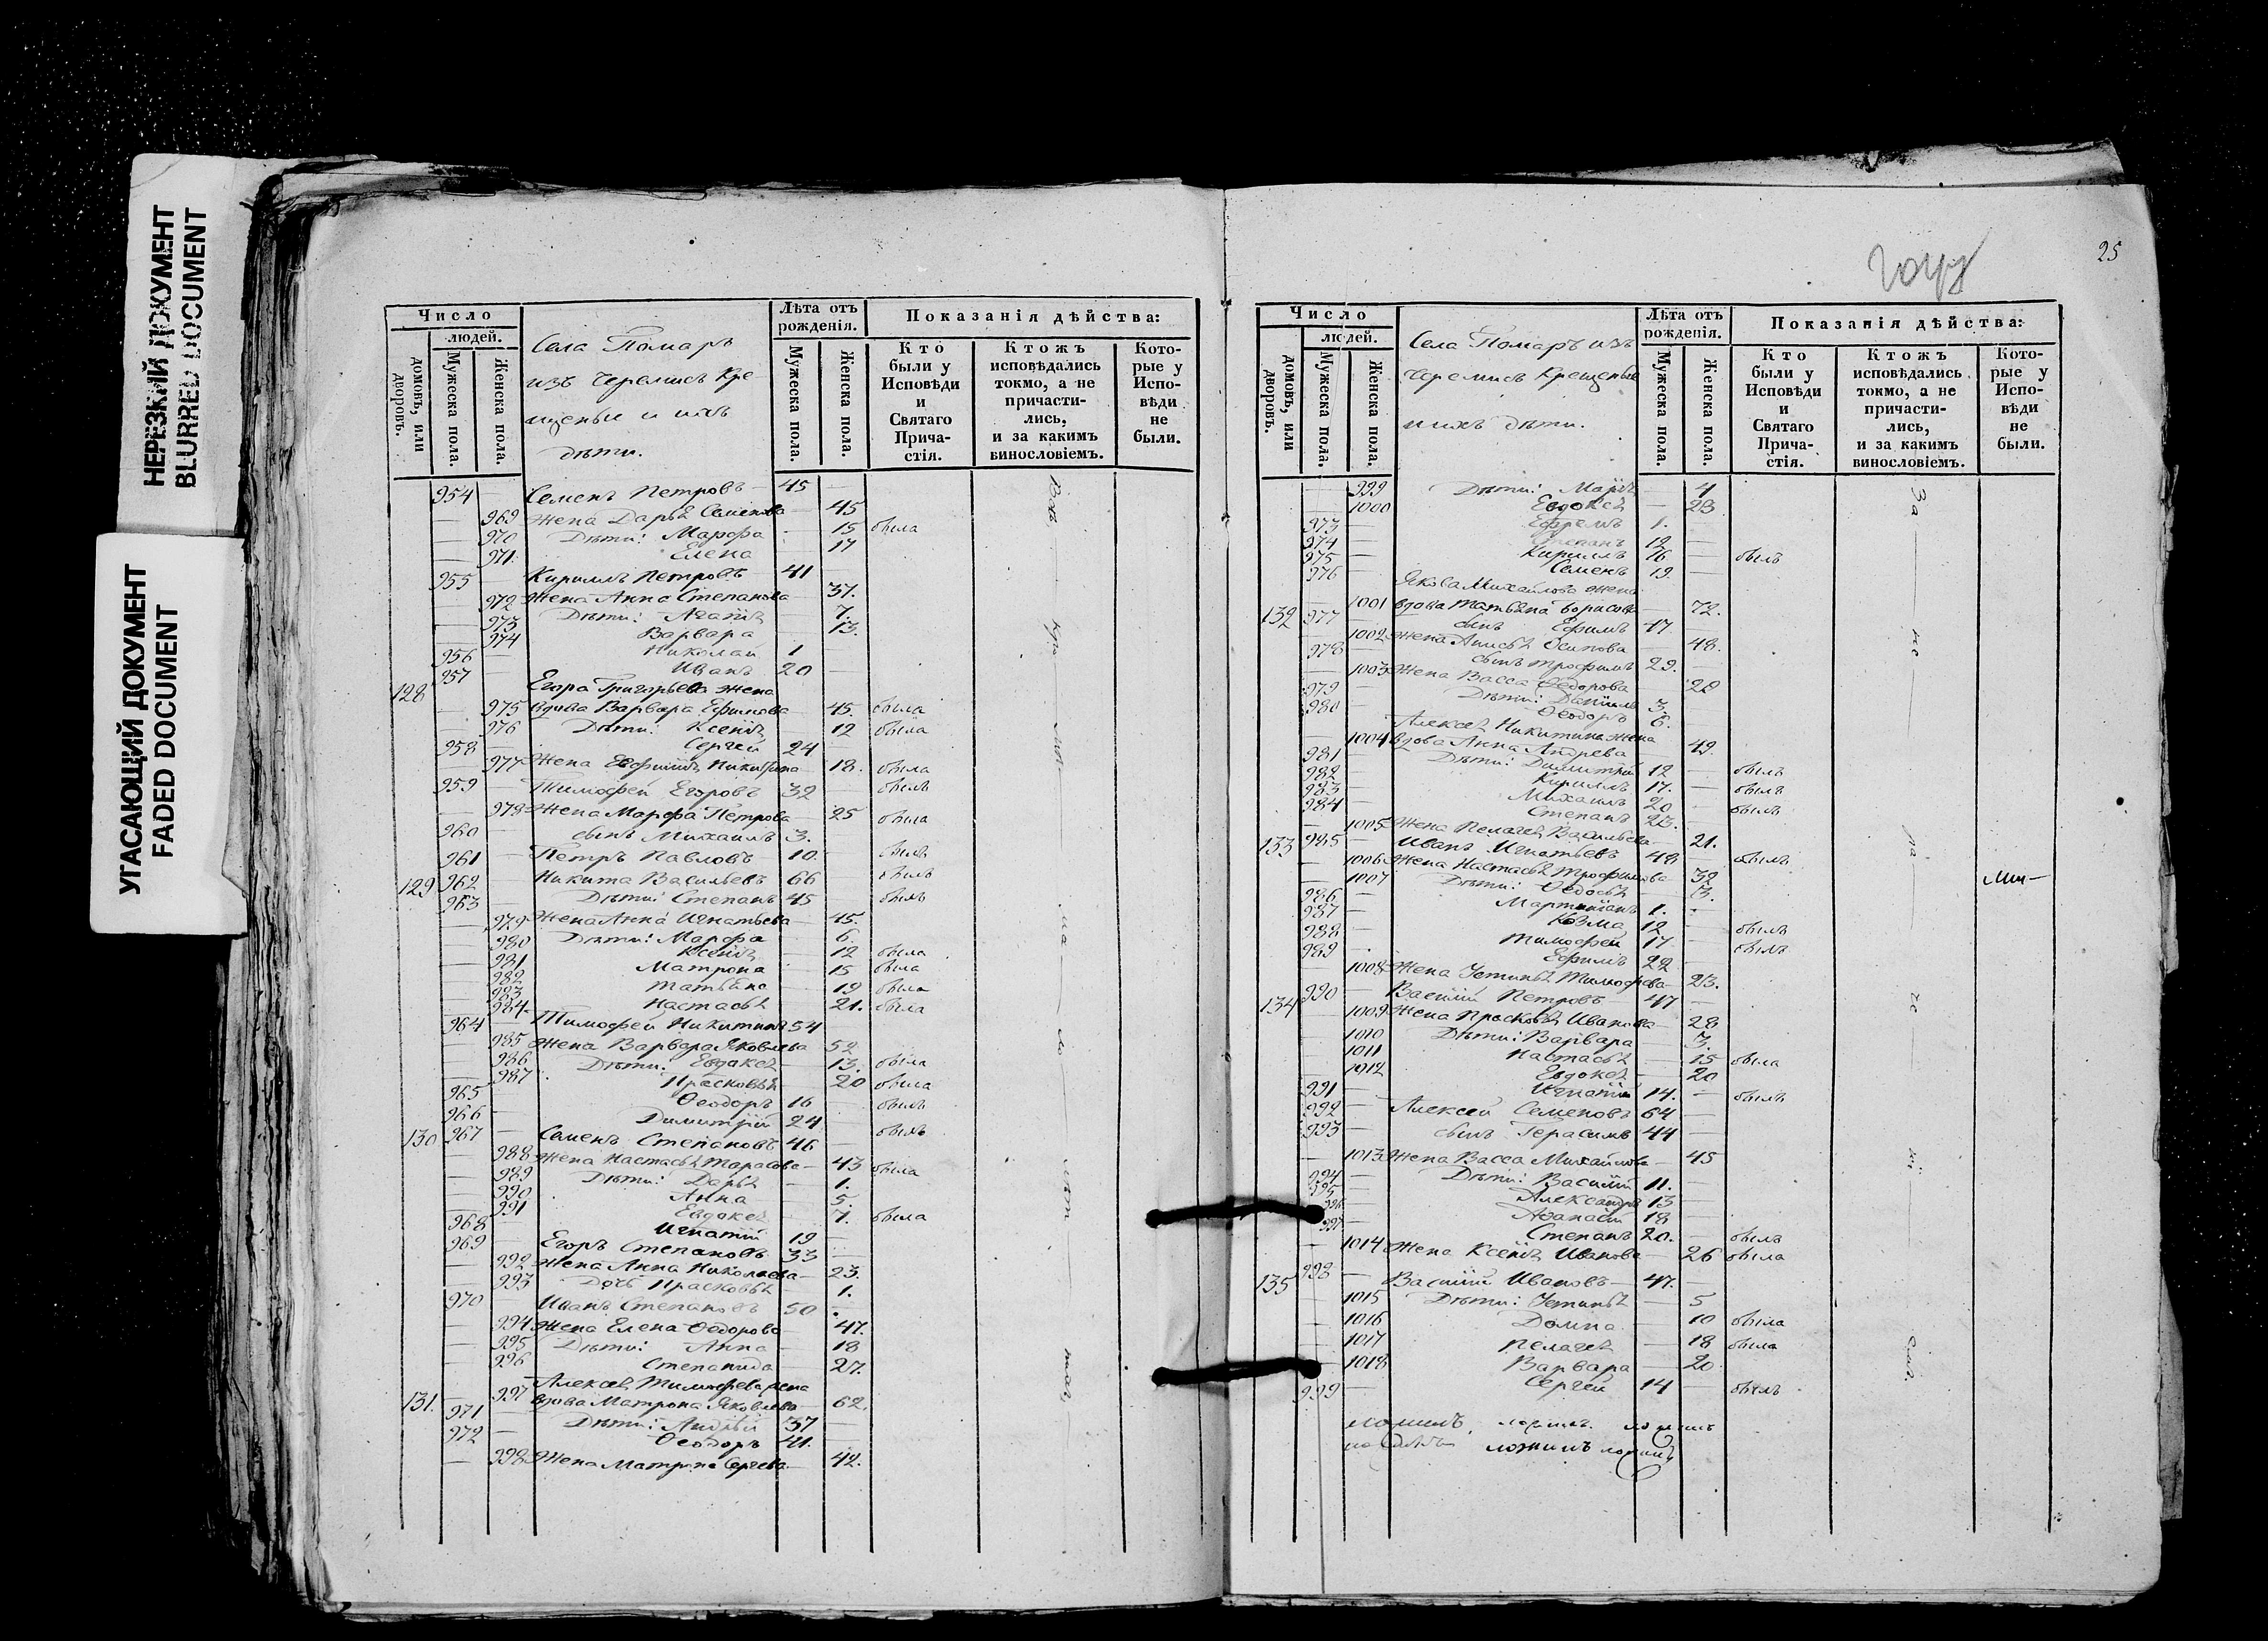 НЕРЕЗКИЙ ДОКУМЕНТ
BLURRED DOCUMENT
УГАСАЮЩИЙ ДОКУМЕНТ
FADED DOCUMENT
Число
людей.
домовъ, или дворовъ.
Мужеска пола.
Женска пола.
Села Помаръ
изъ Черемисъ Кре-
щеные и ихъ
дѣти.
Лѣта отъ рожденія.
Мужеска пола.
Женска пола.
Показанія дѣйства:
Кто были у Исповѣди и Святаго Прича-стія.
Ктожъ исповѣдались токмо, а не причасти-лись, и за какимъ винословіемъ.
Кото-рые у Испо-вѣди не были.
954 — Семенъ Петровъ 45 —
— 969 Жена Дарья Семенова — 45
— 970 Дѣти: Марфа — 15 была
— 971 Елена — 17
955 — Кириллъ Петровъ 41
— 972 Жена Анна Степанова — 37.
— 973 Дѣти: Агаѳія — 7.
— 974 Варвара — 13.
956 — Николай 1
957 — Иванъ 20 —
128 Егора Григорьева жена
— 975 вдова Варвара Ефимова — 45. была
— 976 Дѣти: Ксенія — 12 была
958 — Сергей 24 —
— 977 Жена Евфимія Никитина — 18. была
959 — Тимофей Егоровъ 32 — былъ
— 978 Жена Марфа Петрова — 25 была
960 — сынъ Михаилъ 3. —
961 — Петръ Павловъ 10. — былъ
129 962 — Никита Васильевъ 66 — былъ
963 — Дѣти: Степанъ 45 былъ
— 979 Жена Анна Игнатьева — 45.
— 980 Дѣти: Марфа — 6.
— 981 Ксенія — 12 была
— 982 Матрона — 15 была
— 983 Татьяна — 19 была
— 984 Настасья — 21. была
964 — Тимофей Никитинъ 54
— 985 Жена Варвара Яковлева — 52
— 986 Дѣти: Евдокея — 13. была
— 987 Прасковья — 20 была
965 — Ѳеодоръ 16 былъ
966 — Димитрій 24 —
130 967 — Семенъ Степановъ 46 — былъ
— 988 Жена Настасья Тарасова — 43 была
— 989 Дѣти: Дарья — 1.
— 990 Анна 5.
— 991 Евдокея 7. была
968 — Игнатій 19
969 — Егоръ Степановъ 33
— 992 Жена Анна Николаева — 23.
— 993 Дочь Прасковья — 1.
970 Иванъ Степановъ 50
— 994 Жена Елена Ѳедорова — 47.
— 995 Дѣти: Анна — 18
— 996 Степанида — 27.
Алексея Тимофеева жена
131. 997 вдова Матрона Яковлева — 62.
971 — Дѣти: Андрей 37 —
972 — Ѳеодоръ 41. —
— 998 Жена Матрона Сергева — 42.
25
Число
людей.
домовъ, или дворовъ.
Мужеска пола.
Женска пола.
Села Помаръ изъ
Черемисъ Крещеные
и ихъ дѣти.
Лѣта отъ рожденія.
Мужеска пола.
Женска пола.
Показанія дѣйства:
Кто были у Исповѣди и Святаго Прича-стія.
Ктожъ исповѣдались токмо, а не причасти-лись, и за какимъ винословіемъ.
Кото-рые у Испо-вѣди не были.
— 999 Дѣти: Марія — 4
— 1000 Евдокея — 23
973 — Ефремъ 1. —
974 — Степанъ 12 —
975 — Кириллъ 16 — былъ
976 — Семенъ 19. —
Якова Михайлова жена
— 1001 вдова Татьяна Борисова — 72.
132 977 — сынъ Ефимъ 47 —
— 1002 Жена Анисья Осипова — 48.
978 — сынъ Трофимъ 29. —
— 1003 Жена Васса Ѳедорова — 28
979 — Дѣти: Даніилъ 3. —
980 — Ѳеодоръ 6.
Алексея Никитина жена
— 1004 вдова Анна Андрева — 49.
981 Дѣти: Димитрій 12 — былъ
982 — Кириллъ 17. — былъ
983 — Михаилъ 20 — былъ
984 — Степанъ 23. —
— 1005 Жена Пелагея Васильева — 21.
133 985 — Иванъ Игнатьевъ 48 — былъ
— 1006 Жена Настасья Трофимова — 32
— 1007 Дѣти: Ѳедосья — 3.
986 — Мартиніанъ 1. —
987 — Козма 12 — былъ
988 — Тимофей 17 — былъ
989 — Ефимъ 22 —
— 1008 Жена Устинья Тимофева — 23.
134 990 — Василій Петровъ 47 —
— 1009 Жена Прасковья Иванова — 28
— 1010 Дѣти: Варвара — 3.
— 1011 Настасья — 15 была
— 1012 Евдокея — 20
991 — Игнатій 14. — былъ
992 — Алексей Семеновъ 64 —
993 — сынъ Герасимъ 44 —
— 1013 Жена Васса Михайлова — 45
994 — Дѣти: Василій 11. —
995 — Александръ 13 —
996 Аѳанасій 18 —
997 — Степанъ 20. — былъ
— 1014 Жена Ксенія Иванова — 26 была
135 998 — Василій Ивановъ 47. —
— 1015 Дѣти: Устинья — 5
— 1016 Домна 10 была
— 1017 Пелагея — 18 была
— 1018 Варвара — 20
999 — Сергей 14 — былъ